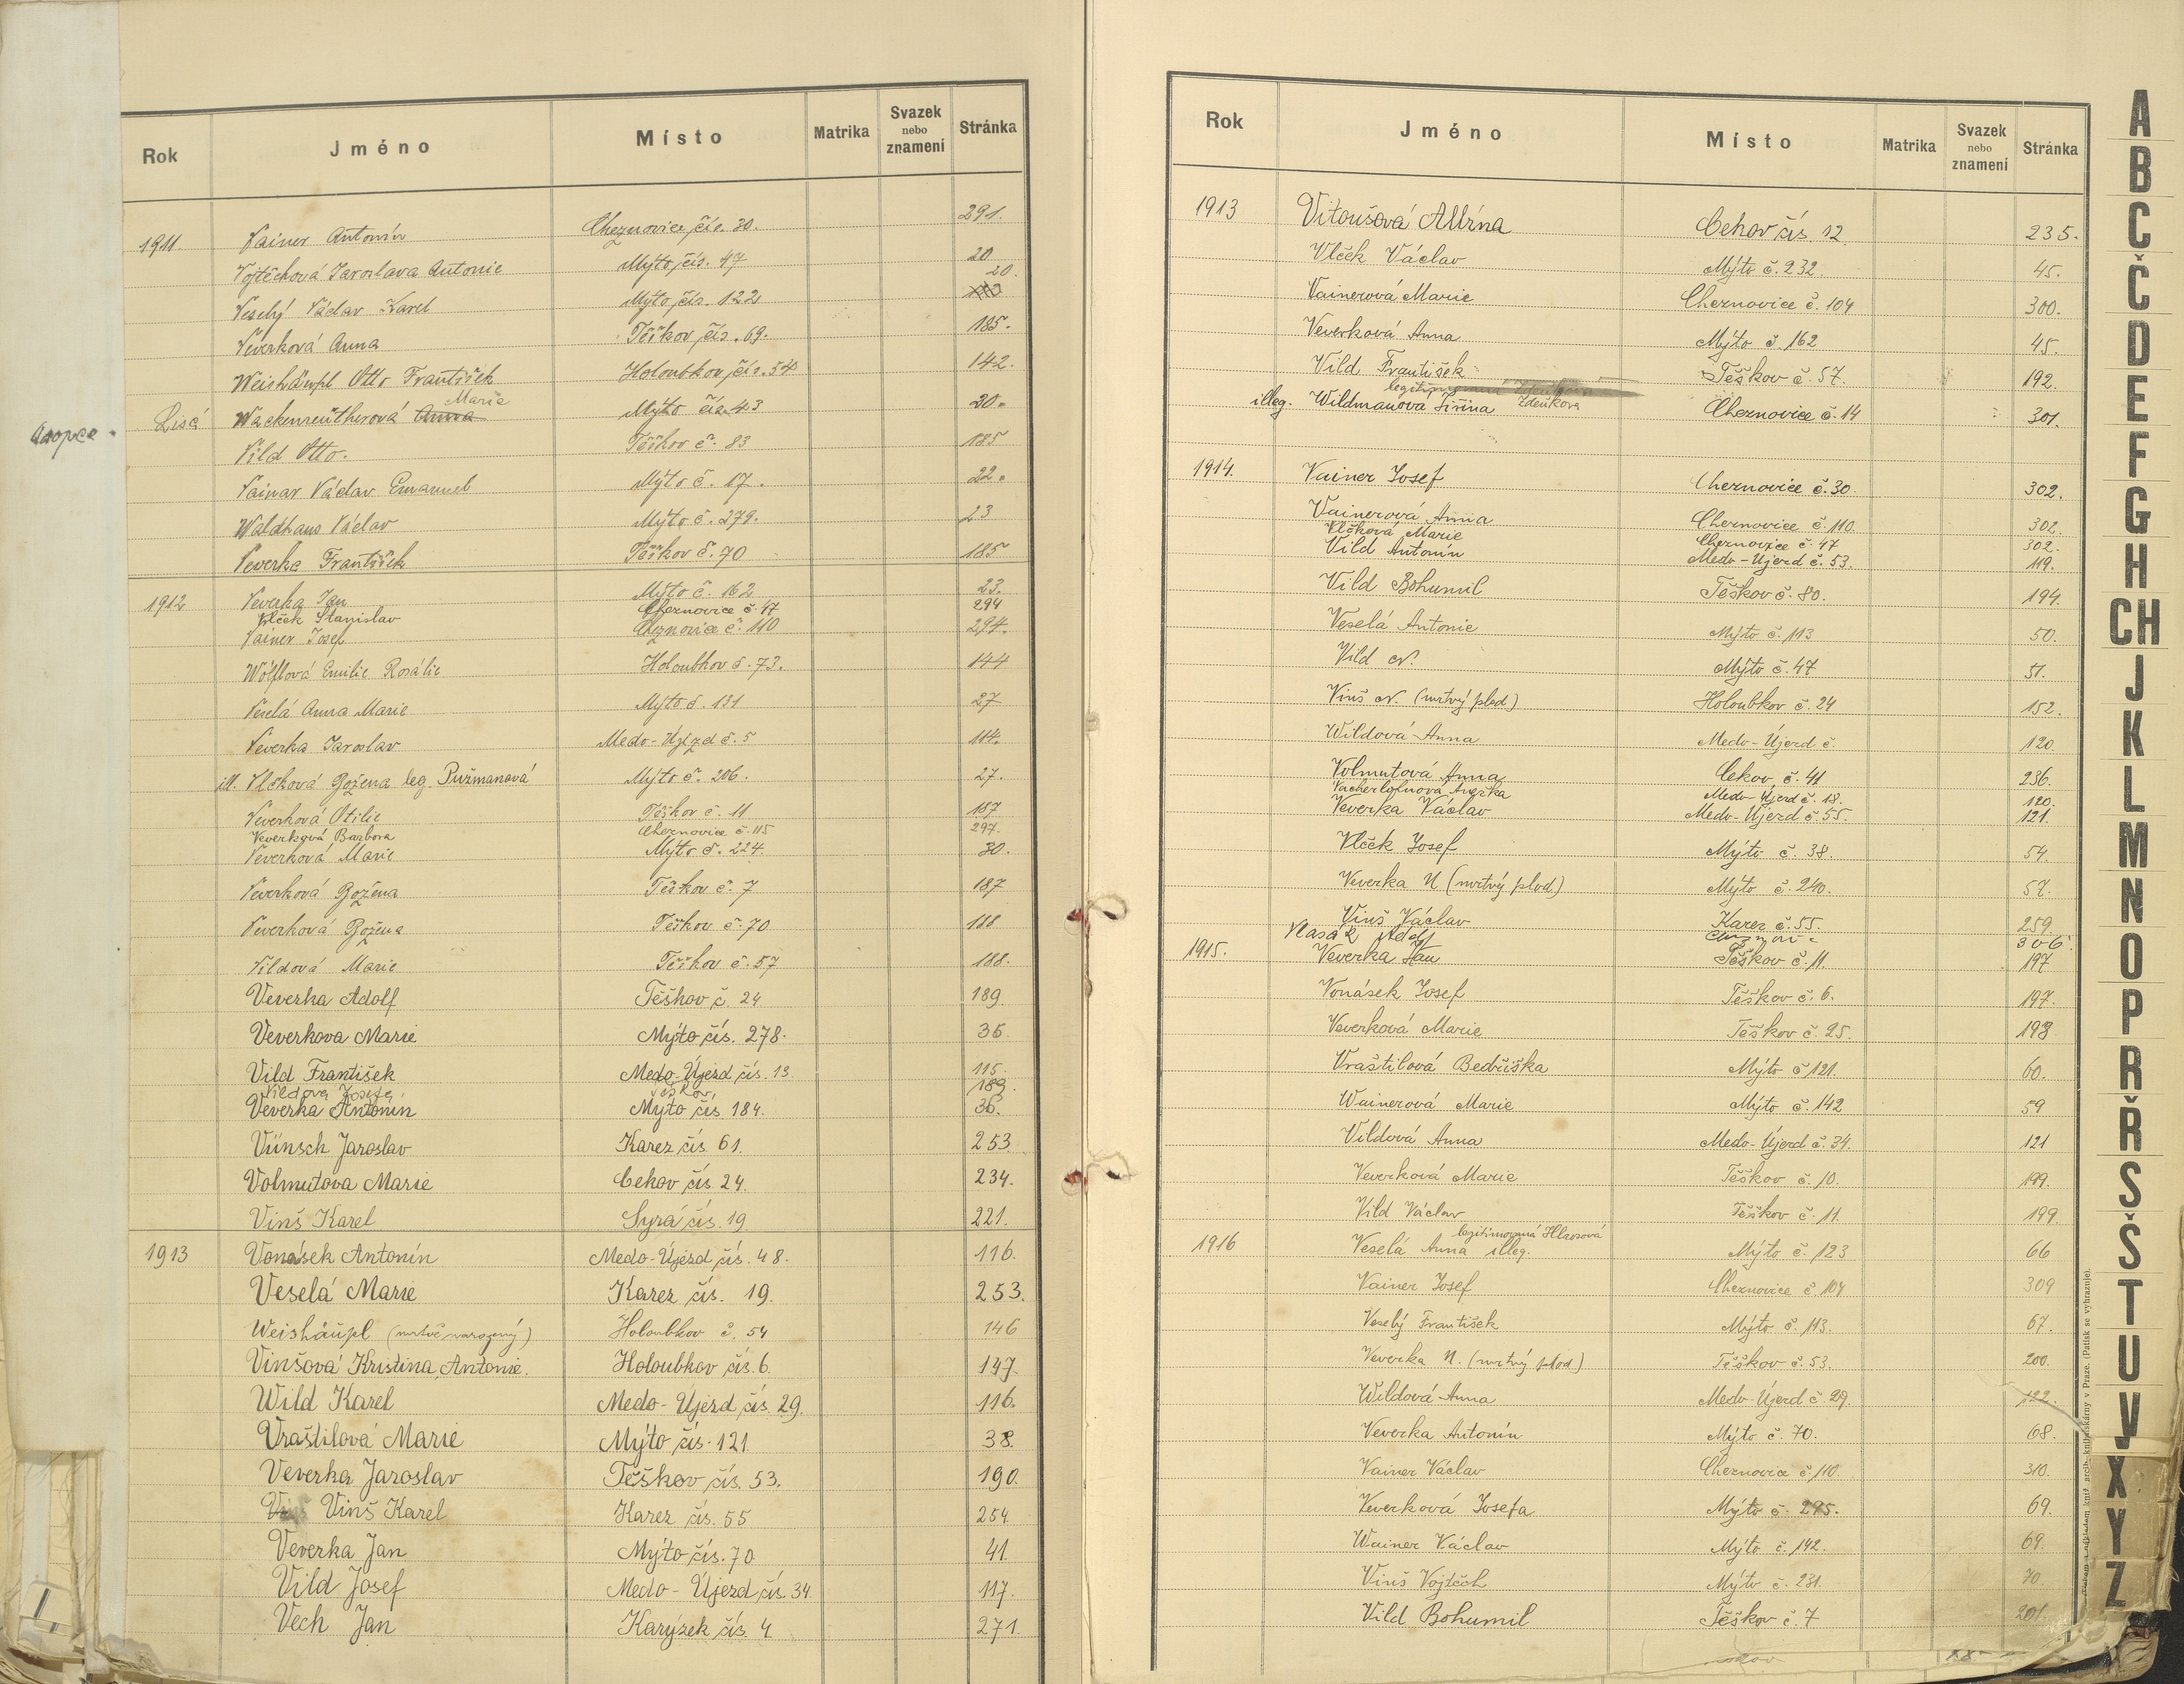 Rok Jméno Místo Matrika Svazek nebo znamení Stránka
1911 Vainer Antonín Cheznovice čís. 30. 291.
Vojtěchová Jaroslava Antonie Mýto čís. 47 20
Veselý Václav Karel Mýto čís. 122 20.
Veverková Anna Těškov čís. 69. 185.
Weishäupl Otto František Holoubkov čís. 54 142.
Marie
Lisá Wackenreutherová Anna Mýto čís. 43 20.
Vild Otto. Těškov č. 83 185
Vainar Václav Emanuel Mýto č. 17. 22.
Waldhans Václav Mýto č. 279. 23
Veverka František Těškov č. 70 185
1912 Veverka Jan Mýto č. 162 23.
Vlček Stanislav Cheznovice č. 47 294
Vainer Josef Cheznovice č. 110 294.
Wölflová Emilie Rosálie Holoubkov č. 73. 144
Veselá Anna Marie Mýto č. 131 27
Veverka Jaroslav Medo-Újezd č. 5 114.
ill. Vlčková Božena leg. Pužmanová Mýto č. 206. 27.
Veverková Otilie Těškov č. 11 187
Veverková Barbora Cheznovice č. 115 297.
Veverková Marie Mýto č. 224. 30.
Veverková Božena Těškov č. 7 187
Veverková Božena Těškov č. 70 188
Vildová Marie Těškov č. 57 188.
Veverka Adolf Těškov č. 24 189
Veverkova Marie Mýto čís. 278. 35
Vild František Medo-Újezd čís. 13 115.
Vildová Josefa Těškov 189.
Veverka Antonín Mýto čís 184. 36.
Vünsch Jaroslav Karez čís. 61. 253.
Volmutova Marie Cekov čís 24. 234.
Vinš Karel Syrá čís. 19 221.
1913 Vonásek Antonín Medo-Újezd čís. 48. 116.
Veselá Marie Karez čís. 19. 253.
Weishäupl (mrtvě narozený) Holoubkov č. 54 146
Vinšová Kristina, Antonie. Holoubkov čís. 6. 147.
Wild Karel Medo-Újezd čís. 29. 116.
Vraštilová Marie Mýto čís. 121. 38.
Veverka Jaroslav Těškov čís. 53. 190.
Vinš Karel Karez čís. 55 254.
Veverka Jan Mýto čís. 70 41.
Vild Josef Medo-Újezd čís. 34 117.
Vech Jan Karýzek čís. 4 271.
Rok Jméno Místo Matrika Svazek nebo znamení Stránka
1913 Vitoušová Albína Cekov čís. 12. 235.
Vlček Václav Mýto č. 232. 45.
Vainerová Marie Cheznovice č. 104 300.
Veverková Anna Mýto č. 162 45.
Vild František Těškov č. 57. 192.
illeg. Wildmanová Jiřina Zdeňkova Cheznovice č. 14 301.
1914. Vainer Josef Cheznovice č. 30 302.
Vainerová Anna Cheznovice č. 110. 302
Vlčková Marie Cheznovice č. 47 302.
Vild Antonín Medo-Újezd č. 53. 119.
Vild Bohumil Těškov č. 80. 194.
Veselá Antonie Mýto č. 113 50.
Vild N. Mýto č. 47 51.
Vinš N. (mrtvý plod) Holoubkov č. 24 152.
Wildová Anna Medo-Újezd č. 120
Volmutová Anna Cekov č. 41 236.
Vacherlohnová Anežka Medo-Újezd č. 18. 120.
Veverka Václav Medo-Újezd č. 55. 121.
Vlček Josef Mýto č. 38. 54.
Veverka N (mrtvý plod) Mýto č. 240. 57.
Vinš Václav Karez č. 55. 259
Vlasák 306
1915. Veverka Jan Těškov č. 11. 197
Vonásek Josef Těškov č. 6. 197.
Veverková Marie Těškov č. 25. 198
Vraštilová Bedřiška Mýto č. 121. 60.
Wainerová Marie Mýto č. 142 59
Vildová Anna Medo-Újezd č. 34. 121
Veverková Marie Těškov č. 10. 199.
Vild Václav Těškov č. 11. 199.
legitimovaná
1916 Veselá Anna illeg. Mýto č. 123 66
Vainer Josef Cheznovice č. 104 309
Veselý František Mýto č. 113. 67.
Veverka N. (mrtvý plod) Těškov č. 53. 200.
Wildová Anna Medo-Újezd č. 29. 122.
Veverka Antonín Mýto č. 70. 68.
Vainer Václav Cheznovice č. 110 310.
Veverková Josefa Mýto č. 295. 69.
Wainer Václav Mýto č. 142. 69.
Vinš Vojtěch Mýto č. 231. 70
Vild Bohumil Těškov č. 7 201.
A
B
C
Č
D
E
F
G
H
CH
J
K
L
M
N
O
P
R
Ř
S
Š
T
U
V
X
Y
Z